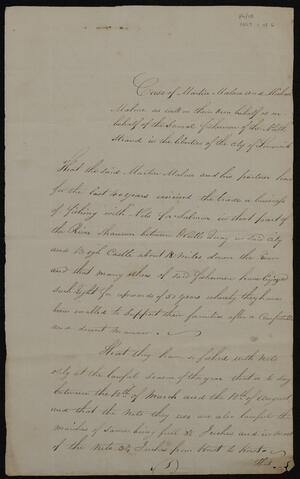 Case of Martin Malone and Michael
Malone as well on their own behalf as on
behalf of the Several fishermen of the North
Strand in the liberties of the City of Limerick
That the said Martin Malone and his partner have
for the last 40 years exercised the trade & business
of Fishing with Nets for Salmon in that part of
the River Shannon between Quay in said City
and Castle about Miles down the River
and that many others of said Fishermen have enjoyed
such right for upwards of 50 years whereby they have
been enabled to support their families after a Comfortable
and decent manner.
That they have so fished with nets
only at the lawful season of the year that is to say
between the 10th of March and the 10th of August
and that the Nets they use are also lawful the
meshes of same being full Inches and instead
of the Nets Inches from Knot to Knot.
That